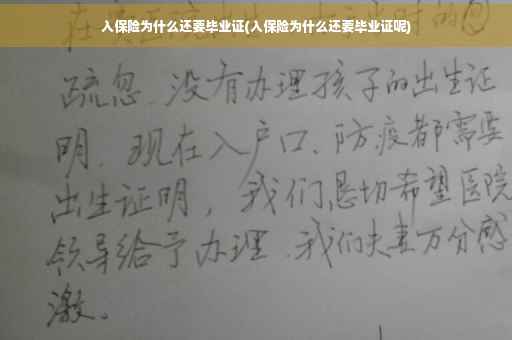 入保险为什么还要毕业证(入保险为什么还要毕业证呢)
疏忽、没有办理孩子的出生证
明、现在入户口、防疫都需要
出生证明，我们恳切希望医院
领导给予办理、我们夫妻万分感
激。